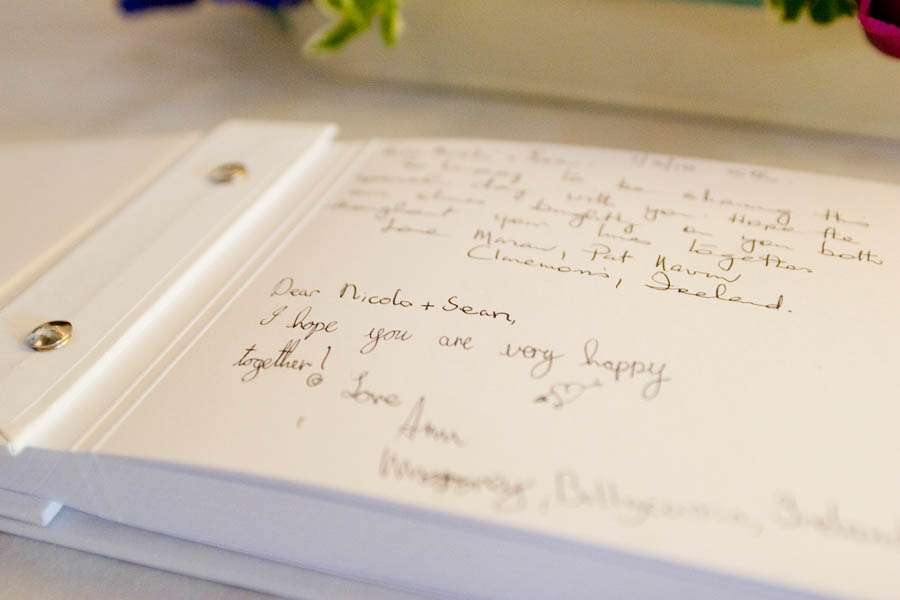 to be sharing this
special day with you. Hope the
sun shines brightly on you both
throughout your lives together
Love Pat
Ireland.
Dear Nicola + Sean,
I hope you are very happy
together!
Love
Ann
Ireland